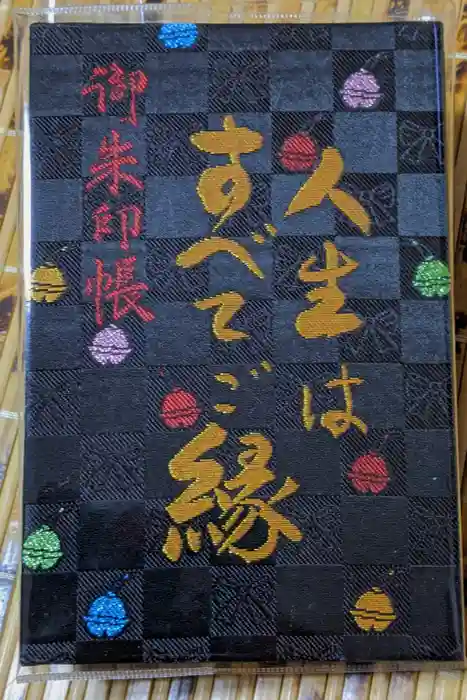 人生は
すべてご縁
御朱印帳